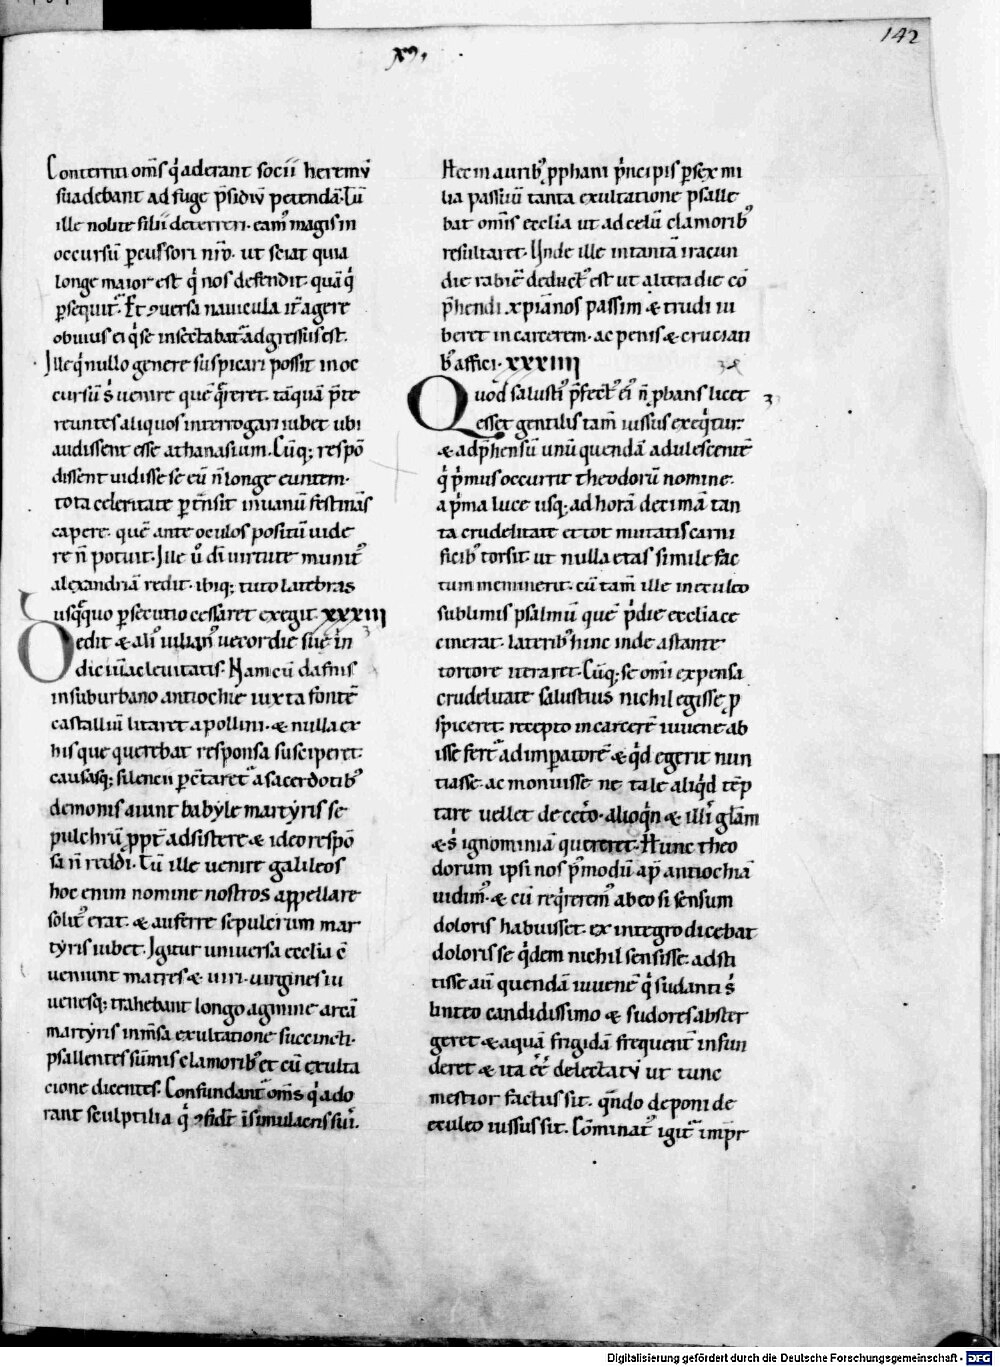 142
xv.
Conterriti om̄s q̇ aderant socii heremū
suadebant ad fugę p̄sidiū petendā. Tū
ille nolite filii deterreri. eam᷒ magis in
occursū p̄cussori nr̄o. ut sciat quia
longe maior est q̇ nos defendit. quā q̇
p̄sequit᷑. Et ꝯuersa nauicula it᷑ agere
obuius ei q̇ se insectabat᷑ adgressus est.
Ille q̇ nullo genere suspicari possit in oc
cursū s̄ uenire quē q̄reret. tāquā p̄te
reuntes aliquos interrogari iubet ubi
audissent esse athanasium. Cūq; respō
dissent uidisse se eū n̄ longe euntem.
tota celeritate p̄t̄nsit inuanū festinās
capere. quē ante oculos positū uide
re n̄ potuit. Ille ū dī uirtute munit᷒
alexandriā redit. ibiq; tuto latebras
usq̄quo p̄secutio cessaret exegit. xxxiii
Dedit & aliꝰ iulianꝰ uecordię suę in
dicium ac leuitatis. Nam cū dafnis
in suburbano antiochię iuxta fontē
castaliū litaret apollini. & nulla ex
his quę querebat responsa susciperet.
causasq; silencii p̄c̄taret᷑ a sacerdotibꝰ
demonis aiunt babyle martyris se
pulchrū ꝓpt̄ adsistere & ideo respō
sa n̄ reddi. Tū ille uenire galileos
hoc enim nomine nostros appellare
solitꝰ erat. & auferre sepulcrum mar
tyris iubet. Igitur uniuersa ecclia ē
ueniunt matres & uiri. uirgines iu
uenesq; trahebant longo agmine arcā
martyris inm̄sa exultatione succincti.
psallentes sūmis clamoribꝰ et cū exulta
cione dicentes. Confundant᷑ om̄s q̇ ado
rant sculptilia q̇ ꝯfidt̄ ī simulacris suis.
Hęc in auribꝰ ꝓphani p̄ncipis p̄ sex mi
lia passuū tanta exultatione psalle
bat omīs ecclia ut ad celū clamoribꝰ
resultaret. Unde ille in tantā iracun
dię rabiē deductꝰ est ut altera die cō
p̄hendi xp̄ianos passim & trudi iu
beret in carcerem. ac penis & cruciati
bꝰ affici. xxxiiii
34
Quod salustiꝰ p̄fectꝰ eiꝰ n̄ ꝓbans licet
esset gentilis tam̄ iussus exeq̇tur.
& adp̄hensū unū quendā adulescentē
q̇ p̄mus occurrit theodorū nomine.
a p̄ma luce usq; ad horā decimā tan
ta crudelitate et tot mutatis carni
ficibꝰ torsit. ut nulla etas simile fac
tum meminerit. cū tam̄ ille in eculeo
sublimis psalmū quē p̄die ecclia ce
cinerat. lateribꝰ hinc inde astante
tortore iteraret. Cūq; se omī expensa
crudelitate salustius nichil egisse ꝑ
spiceret. recepto in carcerē iuuene ab
isse fert᷑ ad imp̄atorē & q̇d egerit nun
tiasse. ac monuisse ne tale aliq̇d tēp
tare uellet de cet̄o. alioq̇n & illi gl̄am
& s̄ ignominiā quereret. Hunc theo
dorum ipsi nos p̄modū ap̄ antiochiā
uidimꝰ. & cū req̇reremꝰ ab eo si sensum
doloris habuisset. ex integro dicebat
doloris se q̇dem nichil sensisse. adsti
tisse aū quendā iuuenē q̇ sudanti s̄
linteo candidissimo & sudores abster
geret & aquā frigidā frequent̄ infun
deret & ita eē delectatū ut tunc
mestior factus sit. q̄ndo deponi de
eculeo iussus sit. Cōminatꝰ igit᷑ imp̄r
Digitalisierung gefördert durch die Deutsche Forschungsgemeinschaft - DFG